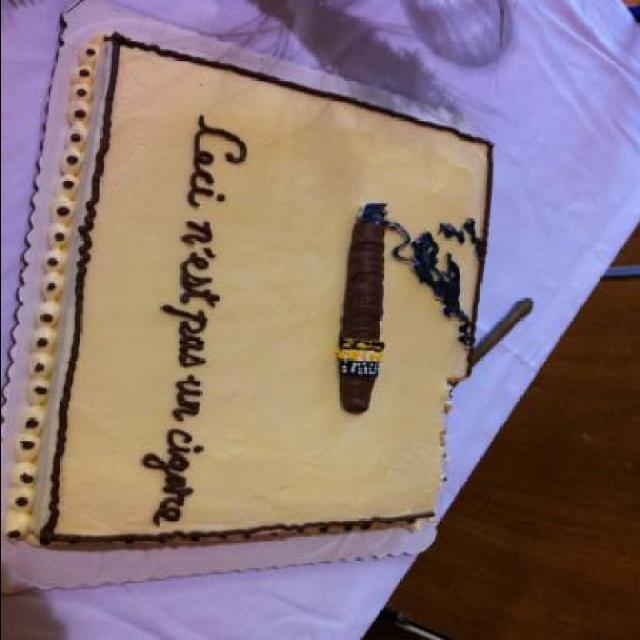 Ceci n'est pas un cigare